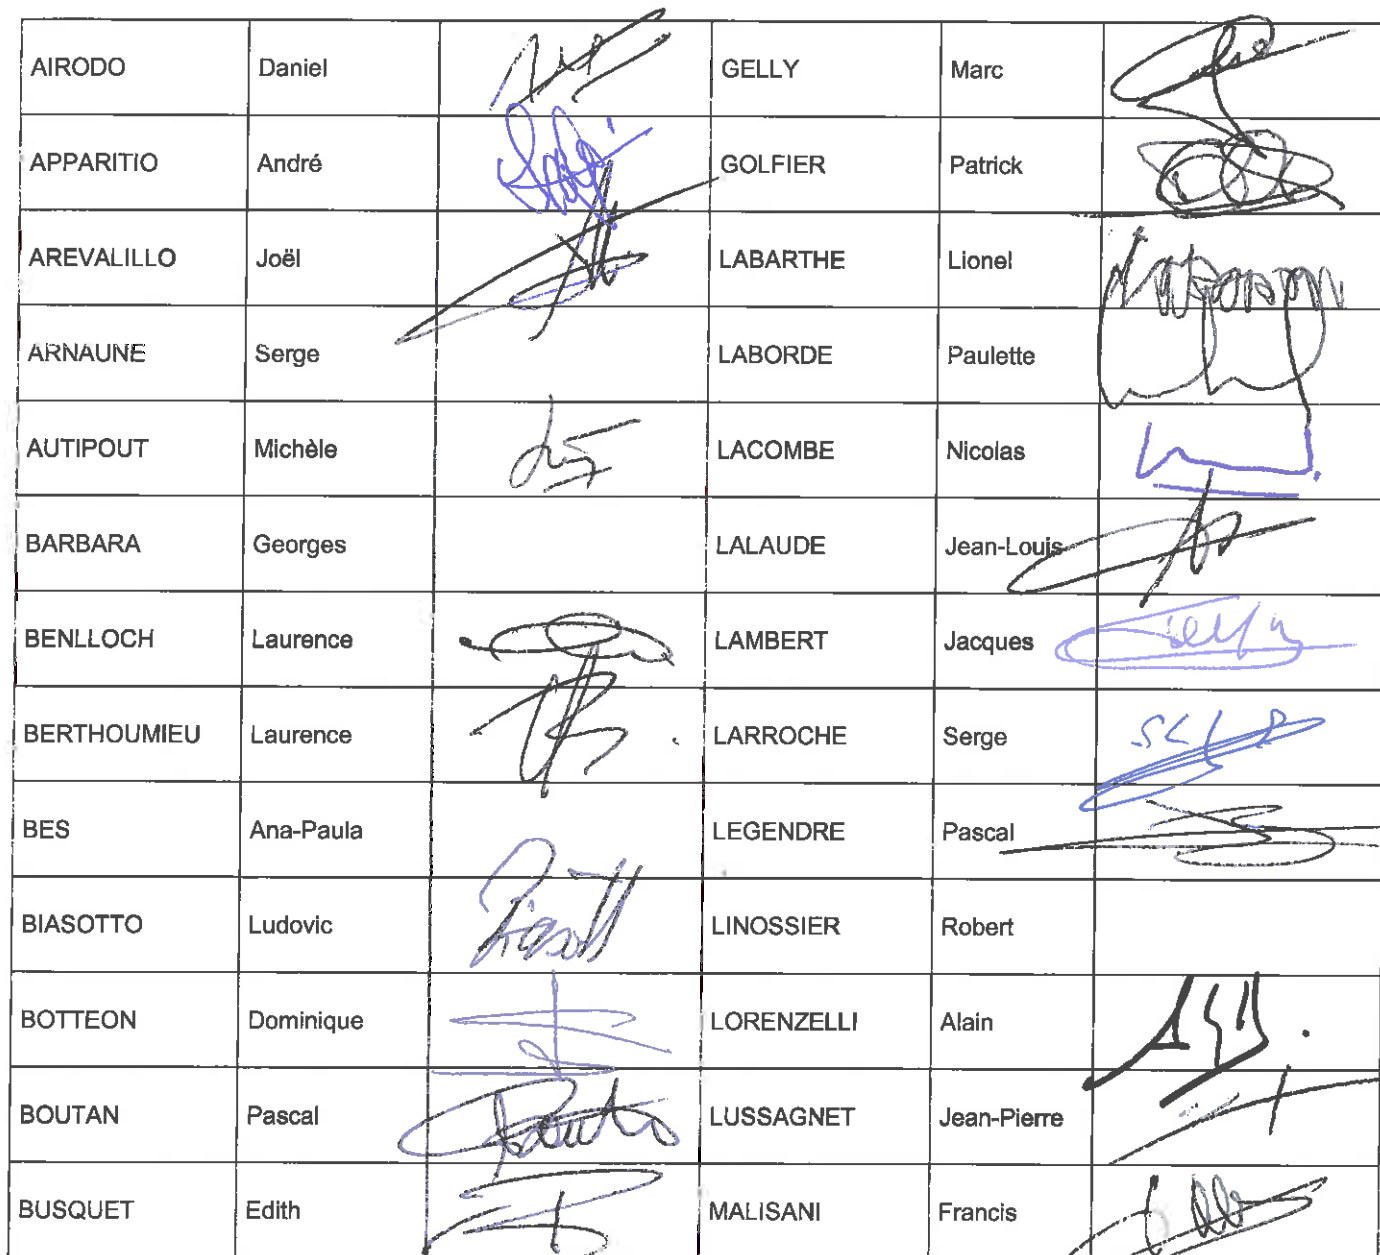 AIRODO Daniel GELLY Marc
APPARITIO André GOLFIER Patrick
AREVALILLO Joël LABARTHE Lionel
ARNAUNE Serge LABORDE Paulette
AUTIPOUT Michèle LACOMBE Nicolas
BARBARA Georges LALAUDE Jean-Louis
BENLLOCH Laurence LAMBERT Jacques
BERTHOUMIEU Laurence LARROCHE Serge
BES Ana-Paula LEGENDRE Pascal
BIASOTTO Ludovic LINOSSIER Robert
BOTTEON Dominique LORENZELLI Alain
BOUTAN Pascal LUSSAGNET Jean-Pierre
BUSQUET Edith MALISANI Francis